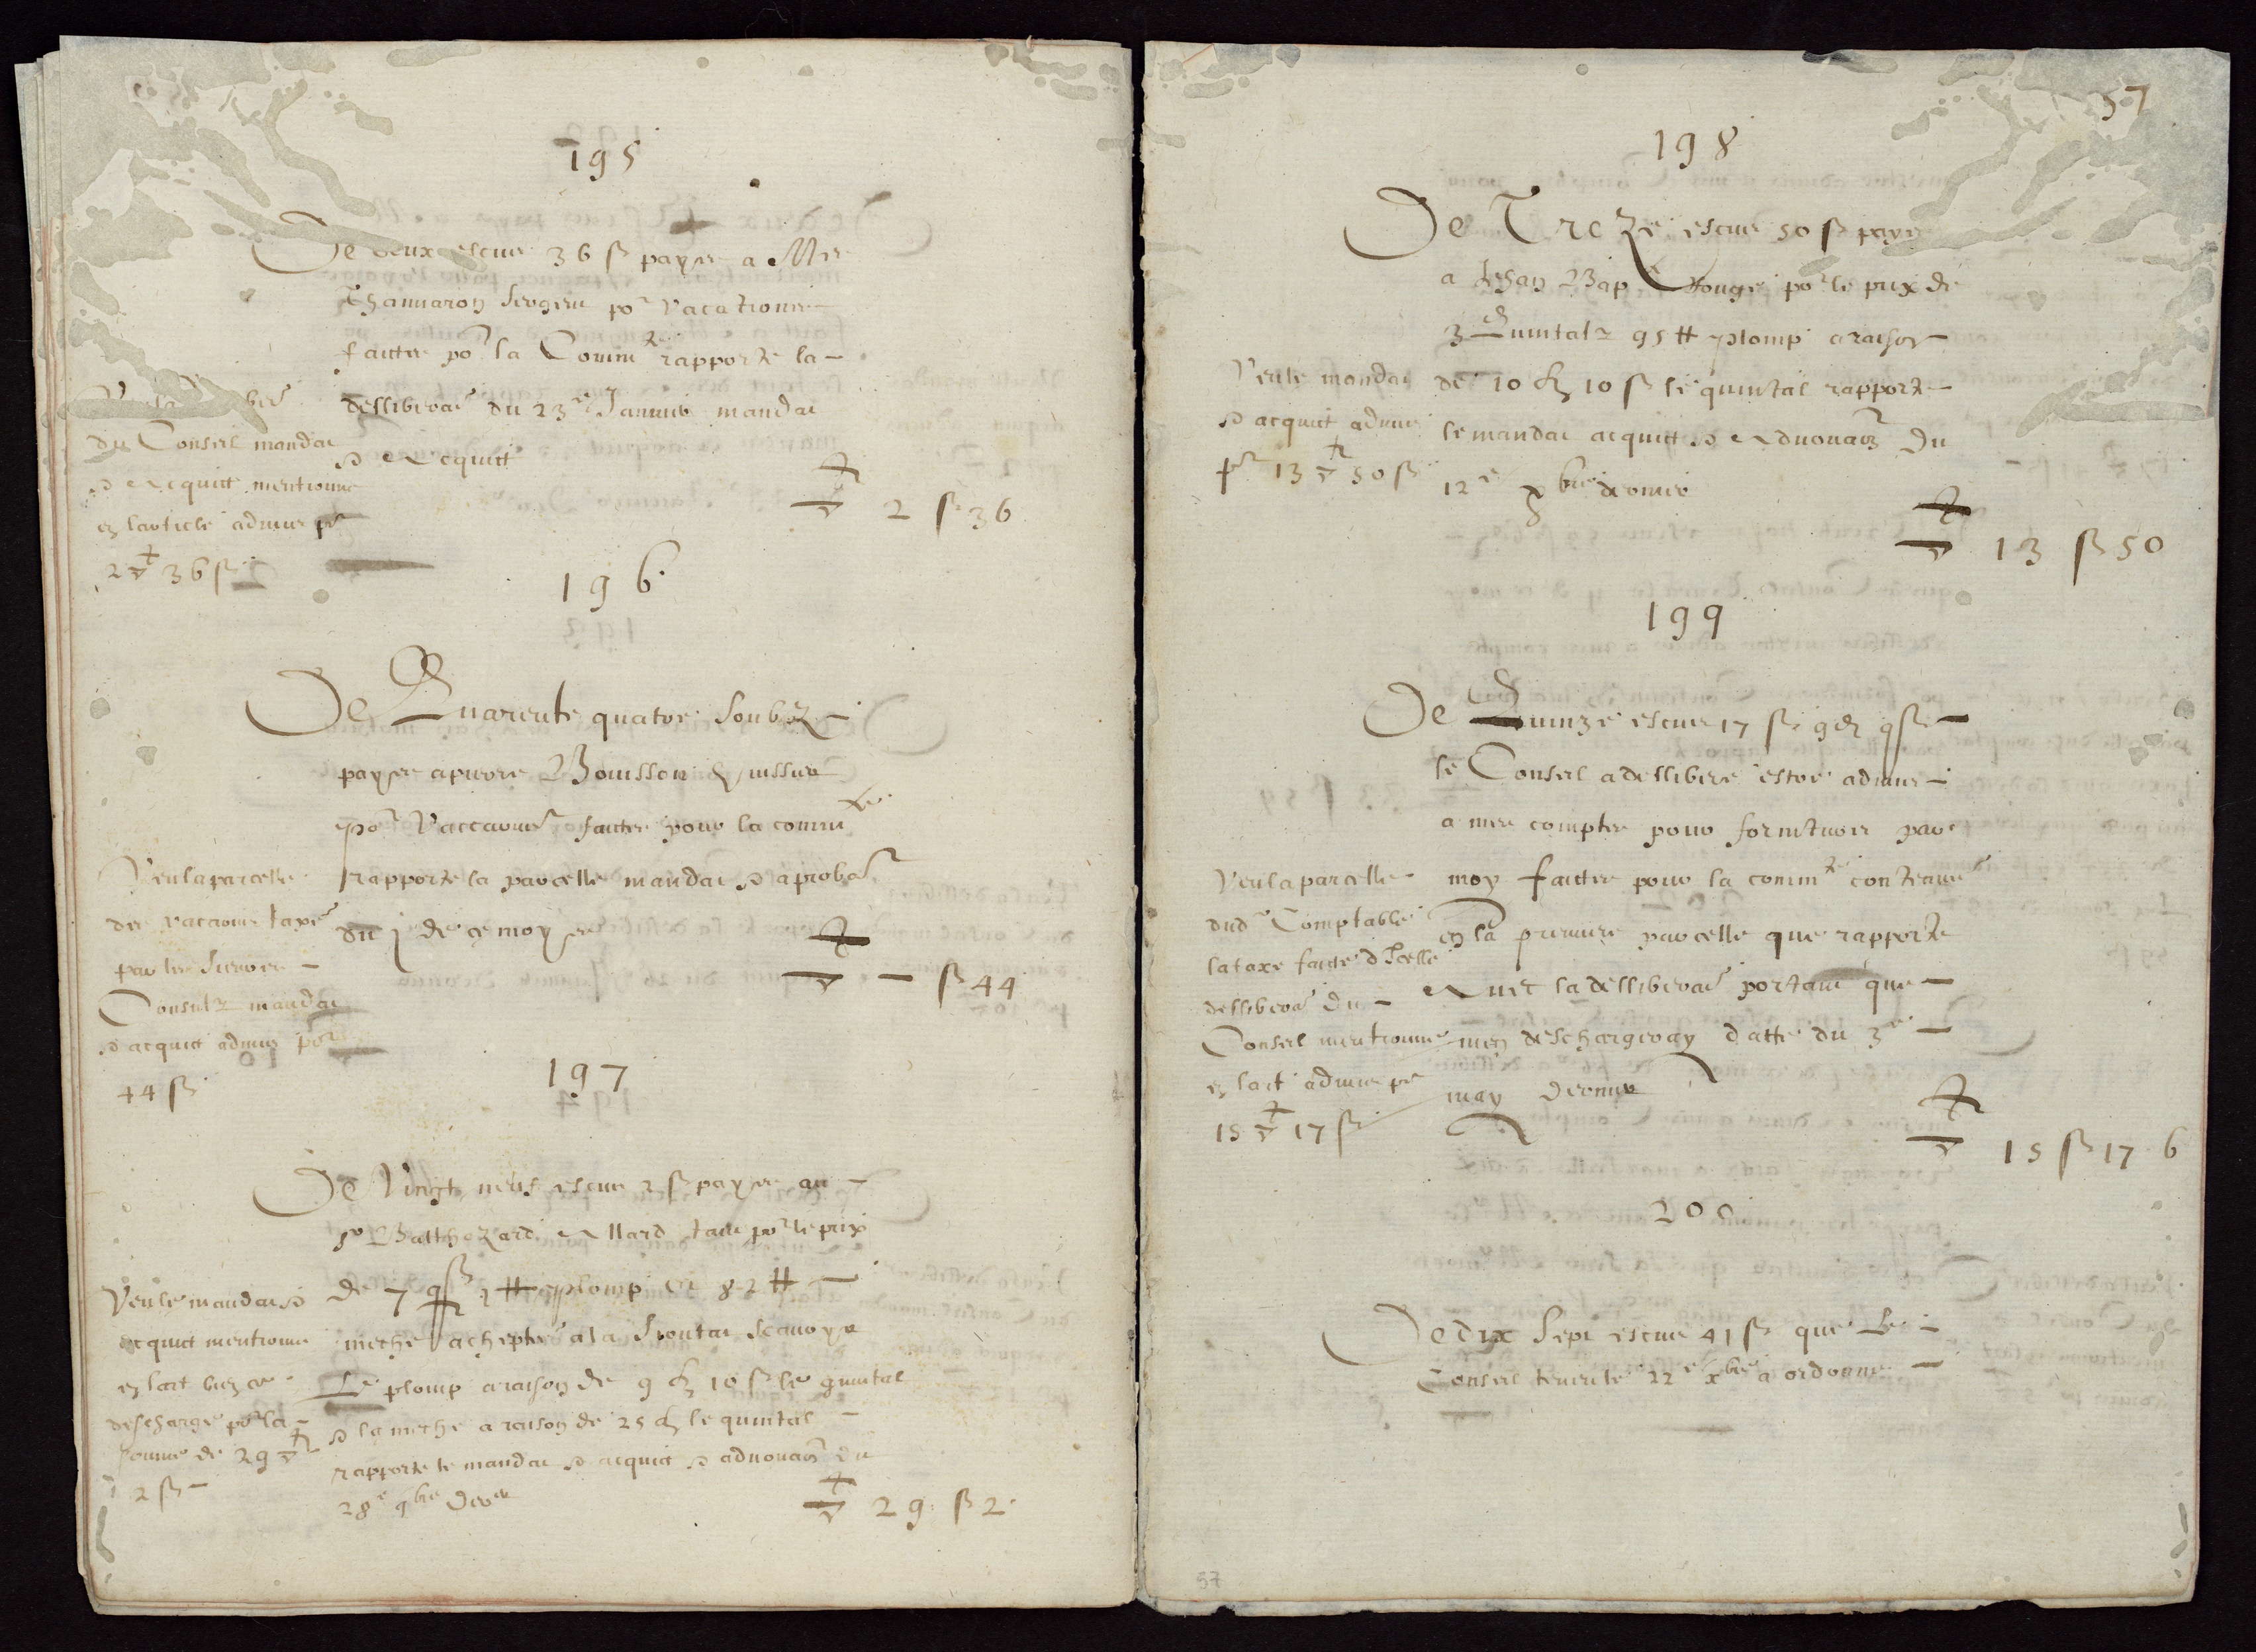 195
De deux escus 36 ß payes a Me
Chamaron sergent por vacations
faittes por la Commte rapporte la
delliberaõn du 23e Janvier mandat
& Acquitt
2 ß 36
du Conseil mandat
& Acquitt mentionne
en larticle admis pr
2 36 ß
196
De Quarente quatre soubz
payes a pierre Bouisson huissier
por vaccaõns faittes pour la commte
rapporte la parcelle mandat & aprobaõn
du j de ce moys
ß 44
Veu la parcelle
des vacaõns taxe
par les sieurs
Consulz mandat
& acquit admis por
44 ß
197
De Vingt neuf escus 2 ß payes au
sr Balthezard Allard por le prix
de 7 plomp et 82 ₶
meche achepte a la scavoyr
Le plomp a raison de 9 10 ß le quintal
& la meche a raison de 25 le quintal
rapporte le mandat & acquit & advouaõn du
28e 9bre dernr
29 ß 2
Veu le mandat &
acquit mentionne
en lart
descharge por la
somme de 29
2 ß
57
198
De Treze escus 50 ß payes
a Jehan Bap Rouge por le prix de
3 Quintalz 95 ₶ plomp a raison
de 10 10 ß le quintal rapporte
le mandat acquitt & Advouaõn du
12e Xbre dernier
13 ß 50
Veu le mandat
& acquit admis
pr 13 50 ß
199
De Quinze escus 17 ß 9d que
le Conseil a dellibere estre admis
a mes comptes pour fornitures par
moy faittes pour la commte contenue
en la premiere parcelle que rapporte
Avec la delliberaõn portant que
men deschargeray datte du 3e
may dernier
15 ß 17 6
Veu la parcelle
dud Comptable
la taxe faitte dIcelle
delliberaõn du
Conseil mentionne
en lart admis pr
15 17 ß
200
De dix sept escus 41 ß que Le
Conseil tenu le 22e xbre a ordonne
57